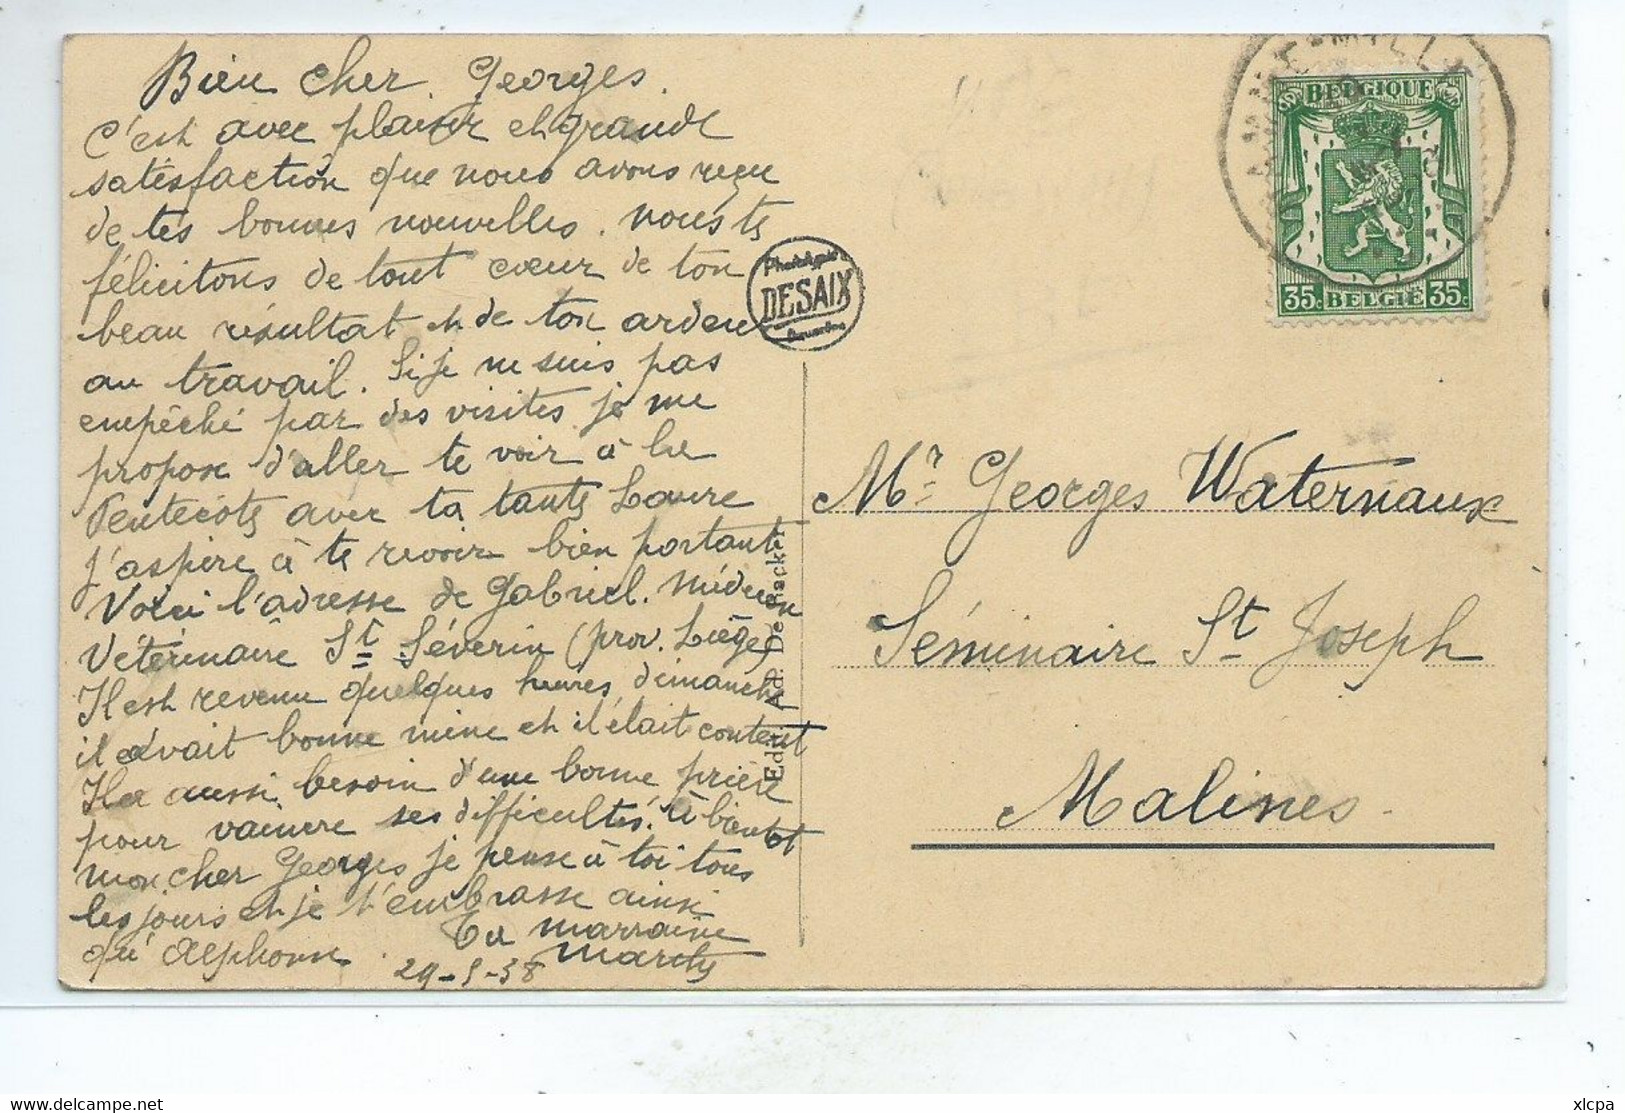 Bien cher Georges.
C'est avec plaisir et grande
satisfaction que nous avons reçu
de tes bonnes nouvelles. nous te
félicitons de tout cœur de ton
beau résultat et de ton ardeur
au travail. Si je ne suis pas
empêché par des visites je me
propose d'aller te voir à la
Pentecôte avec ta tante Laure
J'aspère à te revoir bien portant
Voici l'adresse de Gabriel. Médecin
Vétérinaire St Séverin (prov. Liège)
Il est revenu quelques heures dimanche
il avait bonne mine et il était content
Il a aussi besoin d'une bonne prière
pour vaincre ses difficultés. à bientôt
mon cher Georges je pense à toi tous
les jours et je t'embrasse ainsi
qu' Alphonse. Ta marraine
29-5-38
Phototypie
DESAIX
Bruxelles
Edit. Ad. De
BELGIQUE
35c BELGIË 35c
Mr Georges Waternaux
Séminaire St Joseph
Malines.
delcampe.net
xlcpa